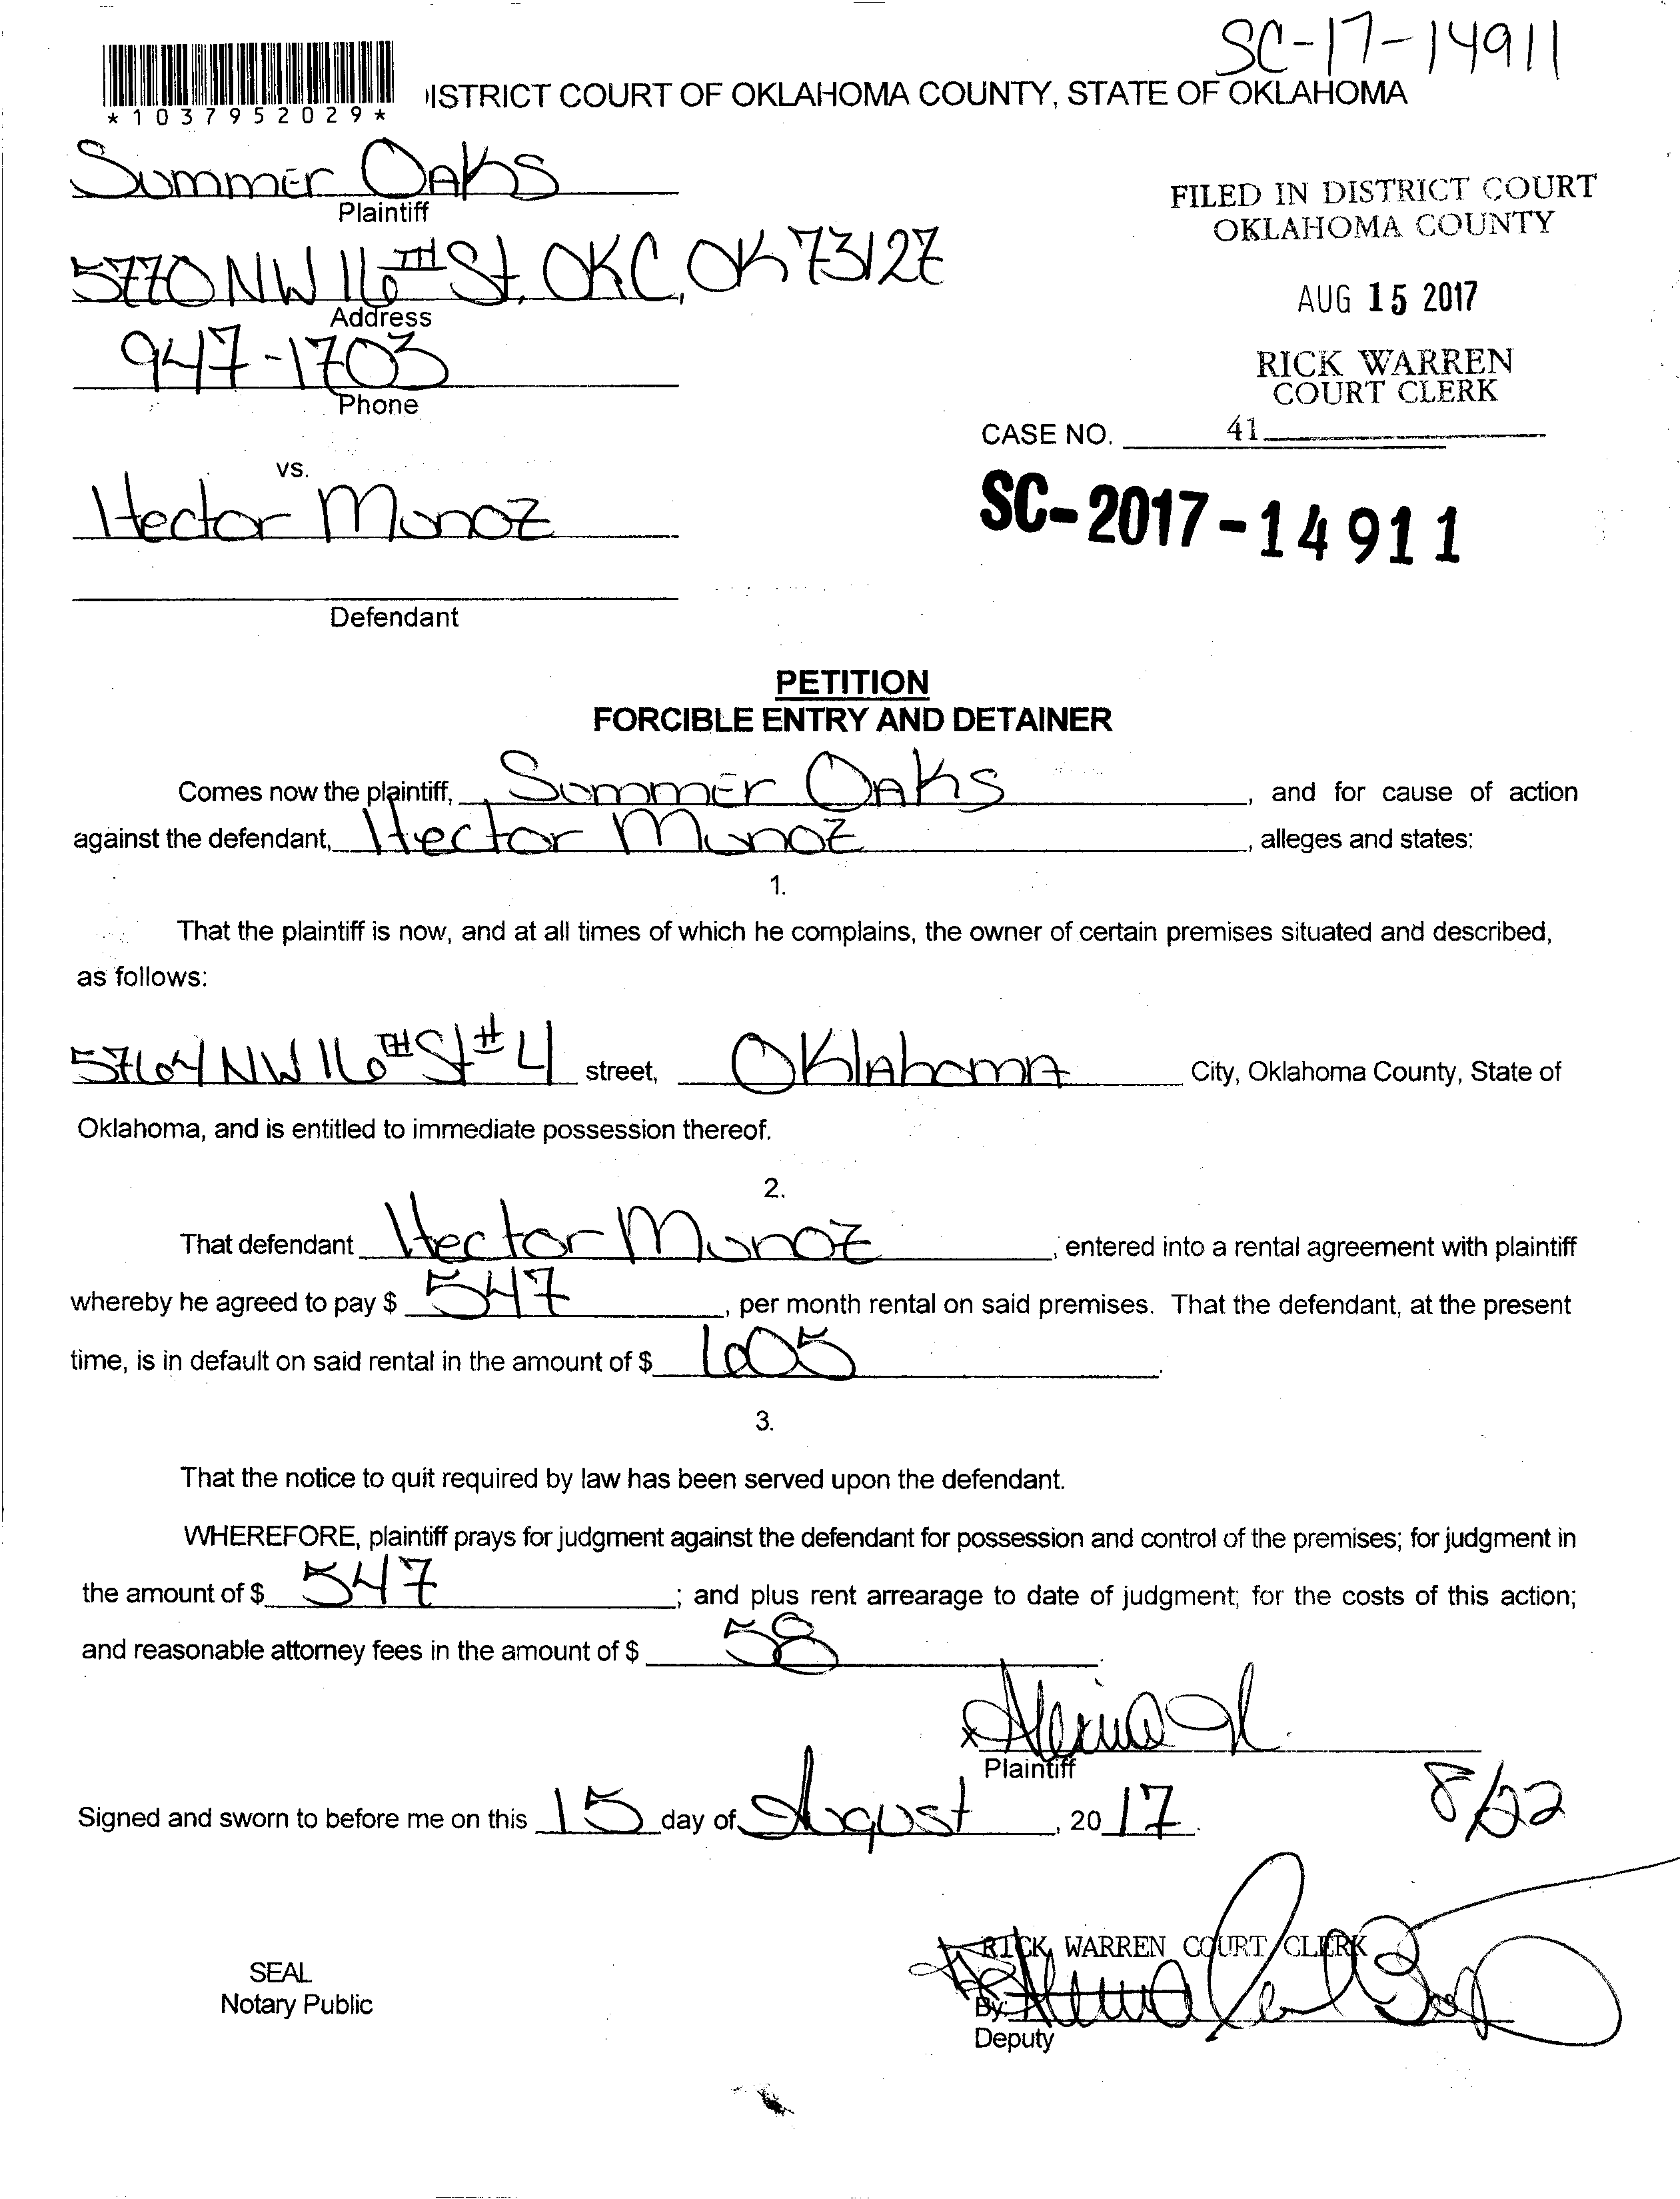 SC-17-14911
*1037952029*
ISTRICT COURT OF OKLAHOMA COUNTY, STATE OF OKLAHOMA
Summer Oaks
Plaintiff
5770 NW 16TH St. OKC, OK 73127
Address
947-1703
Phone
FILED IN DISTRICT COURT
OKLAHOMA COUNTY
AUG 15 2017
RICK WARREN
COURT CLERK
CASE NO. 41
SC-2017-14911
vs.
Hector Munoz
Defendant
PETITION
FORCIBLE ENTRY AND DETAINER
Comes now the plaintiff, Summer Oaks, and for cause of action
against the defendant, Hector Munoz, alleges and states:
1.
That the plaintiff is now, and at all times of which he complains, the owner of certain premises situated and described,
as follows:
5764 NW 16TH St #4 street, Oklahoma City, Oklahoma County, State of
Oklahoma, and is entitled to immediate possession thereof.
2.
That defendant Hector Munoz, entered into a rental agreement with plaintiff
whereby he agreed to pay $ 547, per month rental on said premises. That the defendant, at the present
time, is in default on said rental in the amount of $ 605.
3.
That the notice to quit required by law has been served upon the defendant.
WHEREFORE, plaintiff prays for judgment against the defendant for possession and control of the premises; for judgment in
the amount of $ 547; and plus rent arrearage to date of judgment; for the costs of this action;
and reasonable attorney fees in the amount of $ 58.
x
Plaintiff
8/22
Signed and sworn to before me on this 15 day of August, 20 17.
RICK WARREN COURT CLERK
By:
Deputy
SEAL
Notary Public